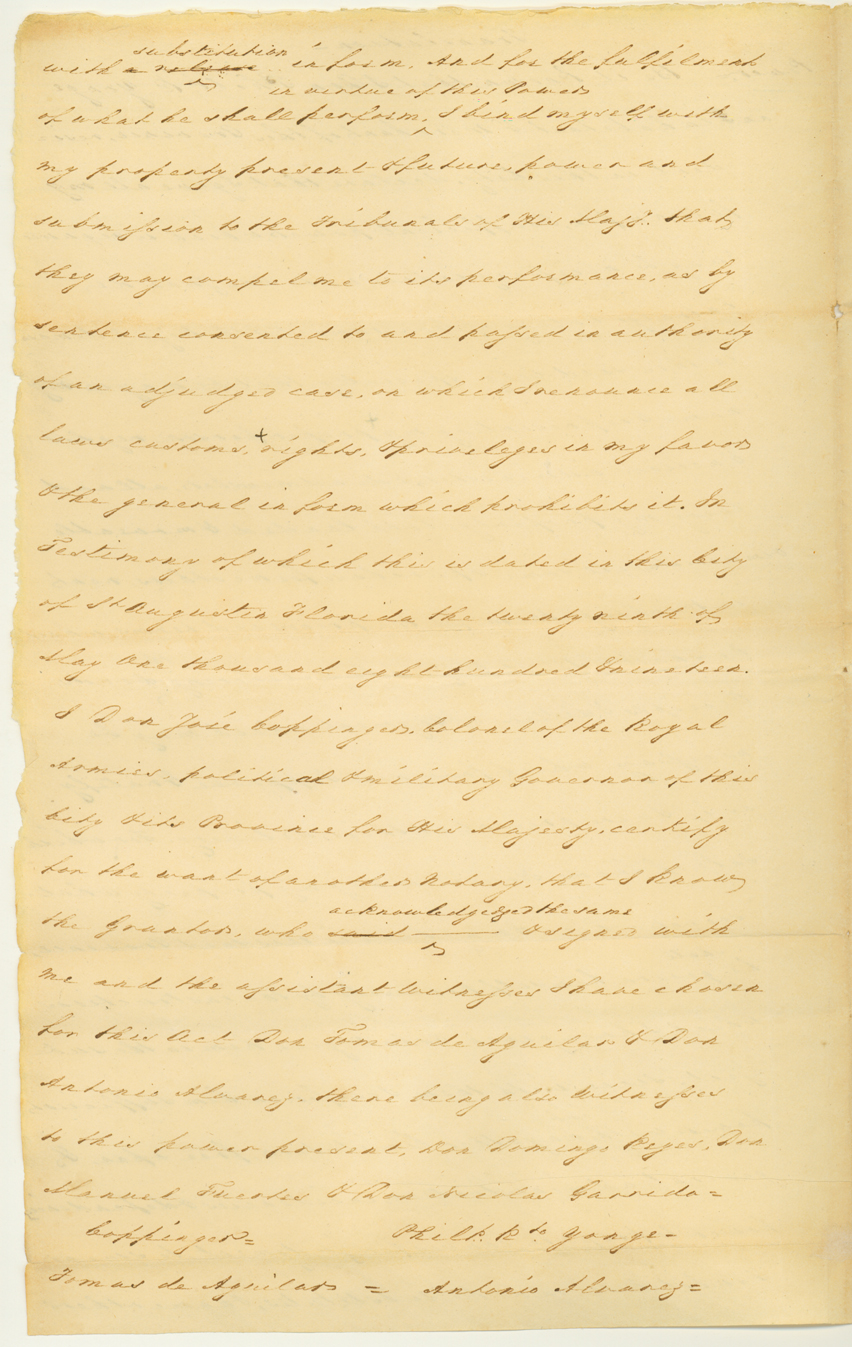 substitution
with a release in form. And for the fulfilment
in virtue of this Power
of what he shall perform, I bind myself with
my property present & future, power and
submission to the Tribunals of His Majy. that
they may compel me to its performance, as by
sentence consented to and passed in authority
of an adjudged case, on which I renounce all
laws customs, + rights, & priveleges in my favor
& the general in form which prohibits it. In
Testimony of which this is dated in this City
of St Augustin Florida the twenty ninth of
May One thousand eight hundred & nineteen.
I Don José Coppinger, Colonel of the Royal
Armies, political & military Governor of this
City & its Province for His Majesty, certify
for the want of another Notary, that I know
acknowledgedged the same
the Grantor, who said & signed with
me and the assistant Witnesses I have chosen
for this Act Don Tomas de Aguilar & Don
Antonio Alvarez, there being also Witnesses
to this power present, Don Domingo Reyes, Don
Manuel Fuertes & Don Nicolas Garrido =
Coppinger = Philp. Rto. Yonge =
Tomas de Aguilar = Antonio Alvarez =